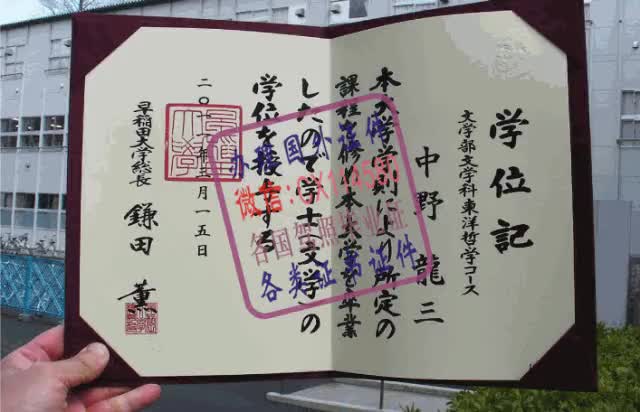 学位記
文学部文学科東洋哲学コース
中野 龍三
本大学学則により所定の
課程を修め本大学を卒業
したので学士(文学)の
学位を授与する
年 月一五日
早稲田大学総長 鎌田 薫
办理国外证件
微信:CX114580
各国驾照毕业证
各类证 证件